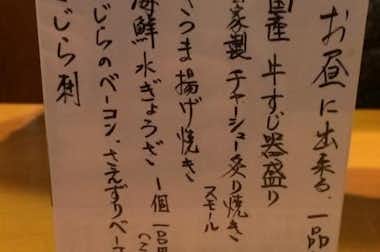 お昼に出来る一品
国産 牛すじ器盛り
家製 チャーシュー炙り焼き
スモール
さつま揚げ焼き
海鮮水ぎょうざ 1個
じらのベーコン、さえずりベー
じら刺